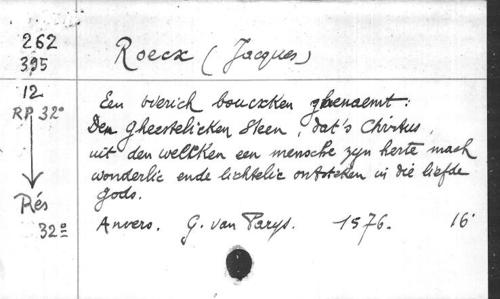 262
395
Roecx (Jacques)
12
RP 32º
Een vverich boucxken ghenaemt:
Den gheestelicken Steen, dat's Christus,
uit den wellken een mensche zyn herte mach
wonderlic ende lichtelic ontsteken in die liefde
gods.
Rés
32º
Anvers. G. van Parys. 1576. 16º